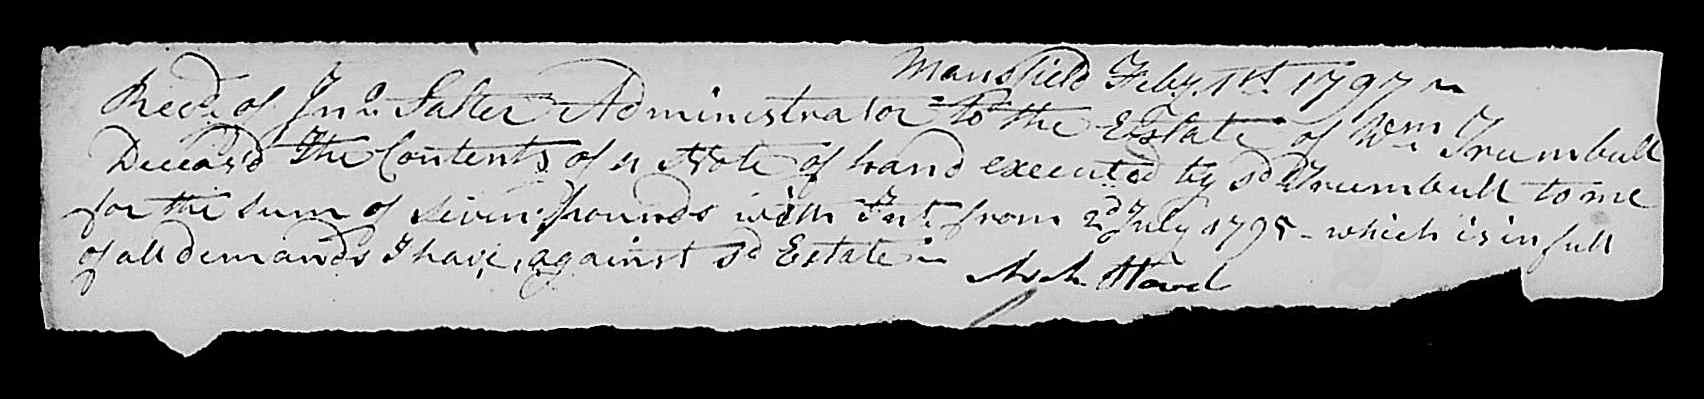 Mansfield Feby. 1st. 1797
Recd. of Jno. Salter Administrator to the Estate of Wm. Trumbull
Deceas'd The Contents of a Note of hand executed by sd. Trumbull to me
for the sum of seven pounds with Int. from 2d July 1795 - which is in full
of all demands I have, against sd Estate